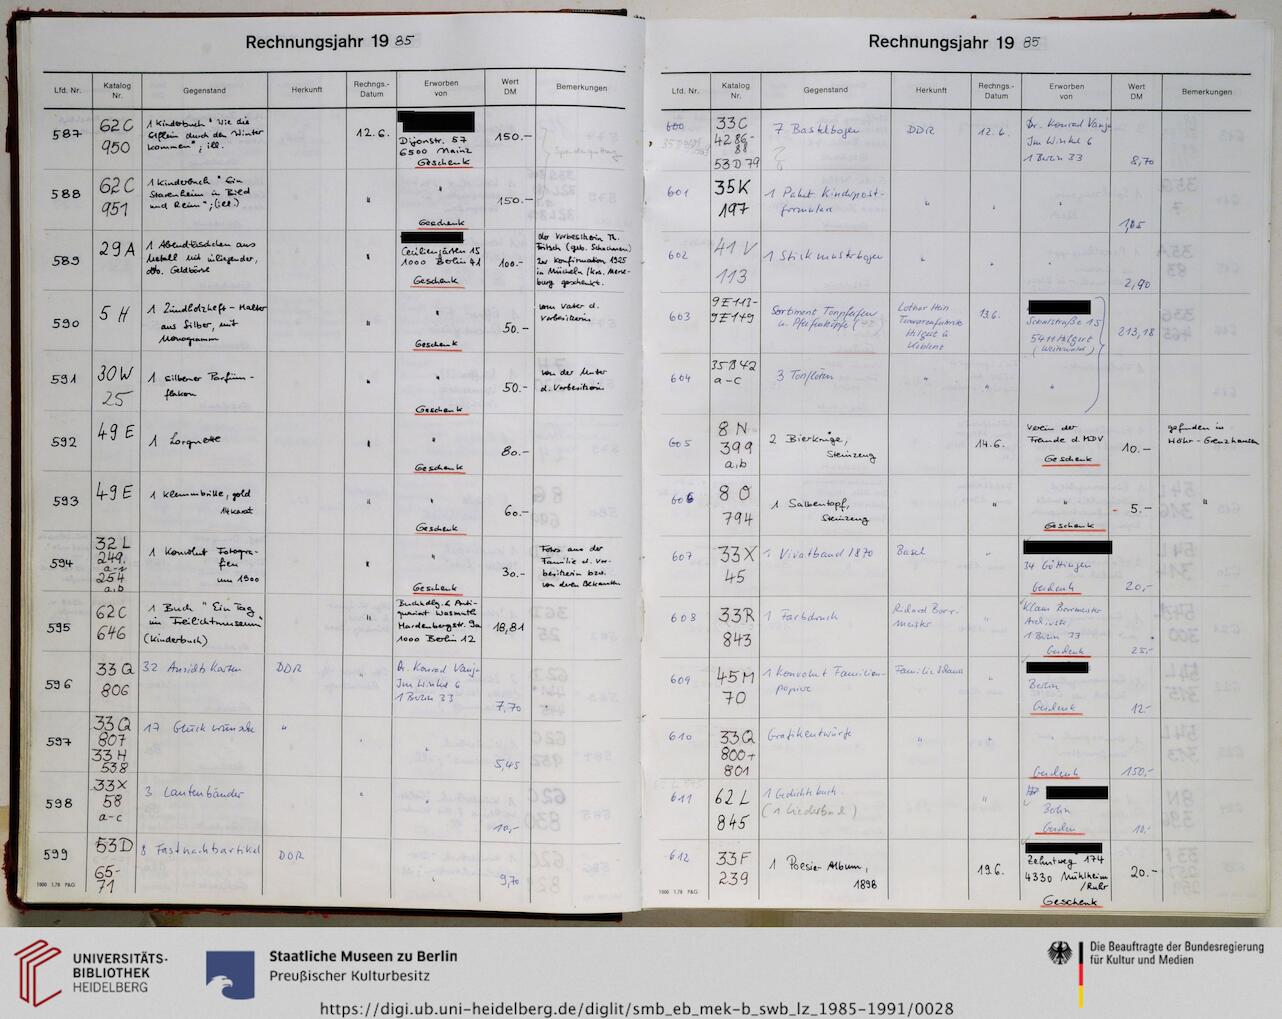 Rechnungsjahr 1985
Lfd. Nr. Katalog Nr. Gegenstand Herkunft Rechngs.-Datum Erworben von Wert DM Bemerkungen
587
62 C
950
1 Kinderbuch "Wie die
durch den Winter
kommen"; ill.
12.6.
Dijonstr. 57
6500 Mainz
Geschenk
150.-
588
62 C
951
1 Kinderbuch "Ein
Starenheim in Bild
und Reim"; (ill.)
"
"
Geschenk
150.-
589
29 A
1 Abendtäschchen aus
Metall mit inliegender,
Geldbörse
"
Ceciliengärten 15
1000 Berlin 41
Geschenk
100.-
der Vorbesitzerin Th.
zur Konfirmation 1925
in Mücheln/Krs. Merse-
burg geschenkt.
590
5 H
1 Zündholzheft-Halter
aus Silber, mit
Monogramm
"
"
Geschenk
50.-
vom Vater d.
Vorbesitzerin
591
30 W
25
1 silberner Parfüm-
flakon
"
"
Geschenk
50.-
von der Mutter
d. Vorbesitzerin
592
49 E
1 Lorgnette
"
"
Geschenk
80.-
593
49 E
1 Klemmbrille, gold
14 karat
"
"
Geschenk
60.-
594
32 L
249,
254
a,b
1 Konvolut Fotogra-
fien
um 1900
"
"
Geschenk
30.-
Fotos aus der
Familie d. Vor-
besitzerin bzw.
von deren Bekannten
595
62 C
646
1 Buch "Ein Tag
im Freilichtmuseum"
(Kinderbuch)
"
Buchhdlg. & Anti-
quariat Wasmuth
Hardenbergstr. 9a
1000 Berlin 12
18,81
596
33 Q
806
32 Ansichtskarten
DDR
"
Dr. Konrad Vanja
Im Winkel 6
1 Berlin 33
7,70
597
33 Q
807
33 H
538
17 Glückwünsche
"
"
"
5,45
598
33 X
58
a-c
3 Lautenbänder
"
"
10,-
599
53 D
65-
71
8 Fastnachtsartikel
DDR
"
9,70
1000 1.78 P&G
Rechnungsjahr 1985
Lfd. Nr. Katalog Nr. Gegenstand Herkunft Rechngs.-Datum Erworben von Wert DM Bemerkungen
600
33 C
4286-
88
53 D 79
7 Bastelbogen
DDR
12.6.
Dr. Konrad Vanja
Im Winkel 6
1 Berlin 33
8,70
601
35 K
197
1 Paket Kinderpost-
formulare
"
"
"
1,05
602
41 V
113
1 Stickmusterbogen
"
"
"
2,90
603
9 E 113-
9 E 149
Sortiment Tonpfeifen
u. Pfeifenköpfe
Lothar Hein
Hilgert b.
Koblenz
13.6.
Schulstraße 15
5411 Hilgert
(Westerwald)
213,18
604
35 B 42
a-c
3 Tonflöten
"
"
"
605
8 N
399
a,b
2 Bierkrüge,
Steinzeug
14.6.
Verein der
Freunde d. MDV
Geschenk
10.-
gefunden in
Höhr-Grenzhausen
606
8 O
794
1 Salbentopf,
Steinzeug
"
"
Geschenk
5.-
"
607
33 X
45
1 Vivatband 1870
Basel
"
34 Göttingen
Geschenk
20,-
608
33 R
843
1 Farbdruck
"
Klaus
1 Berlin 33
Geschenk
25.-
609
45 M
70
1 Konvolut Familien-
papiere
Familie
"
Berlin
Geschenk
12.-
610
33 Q
800+
801
Grafikentwürfe
"
"
Geschenk
150,-
611
62 L
845
1 Gedichtbuch
(1 Liederbuch)
"
Berlin
10,-
612
33 F
239
1 Poesie-Album,
1898
19.6.
Zehntweg 174
4330 Mühlheim
/Ruhr
Geschenk
20.-
1000 1.78 P&G
UNIVERSITÄTS-
BIBLIOTHEK
HEIDELBERG
Staatliche Museen zu Berlin
Preußischer Kulturbesitz
Die Beauftragte der Bundesregierung
für Kultur und Medien
https://digi.ub.uni-heidelberg.de/diglit/smb_eb_mek-b_swb_lz_1985-1991/0028